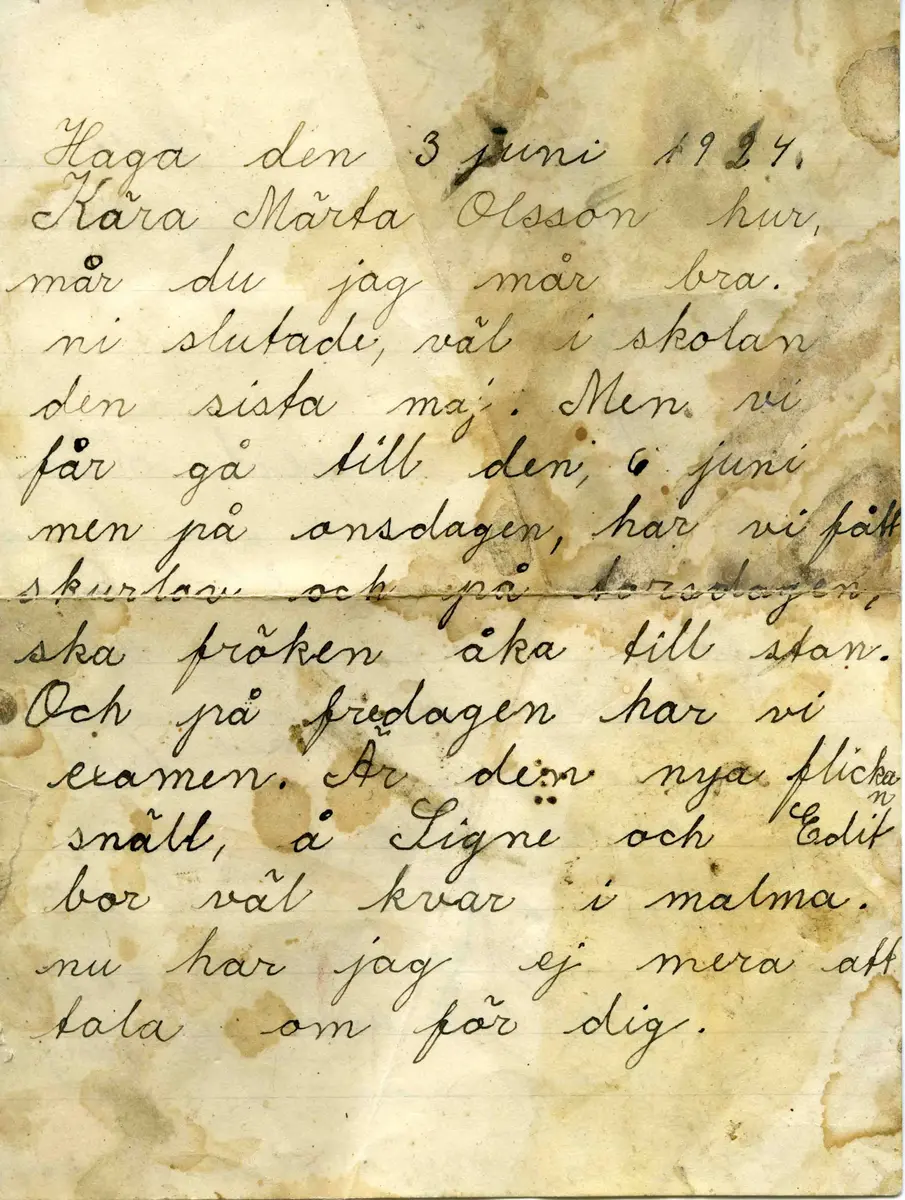 Haga den 3 juni 1924.
Kära Märta Olsson hur,
mår du jag mår bra.
ni slutade, väl i skolan
den sista maj. Men vi
får gå till den, 6 juni
men på onsdagen, har vi fått
skurlov och på torsdagen,
ska fröken åka till stan.
Och på fredagen har vi
examen. Är den nya flickan
snäll, å Signe och Edit
bor väl kvar i malma.
nu har jag ej mera att
tala om för dig.